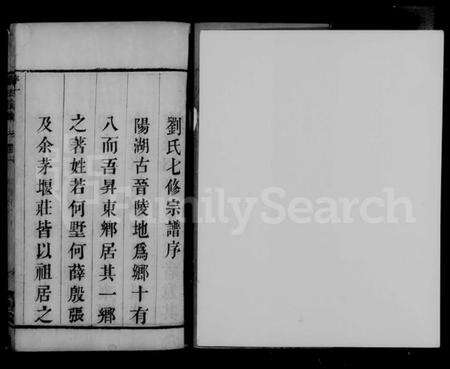 劉氏七修宗譜序
陽湖古晉陵地爲鄉十有
八而吾昇東鄉居其一鄉
之著姓若何墅何薛殷張
及余茅堰莊皆以祖居之
FamilySearch